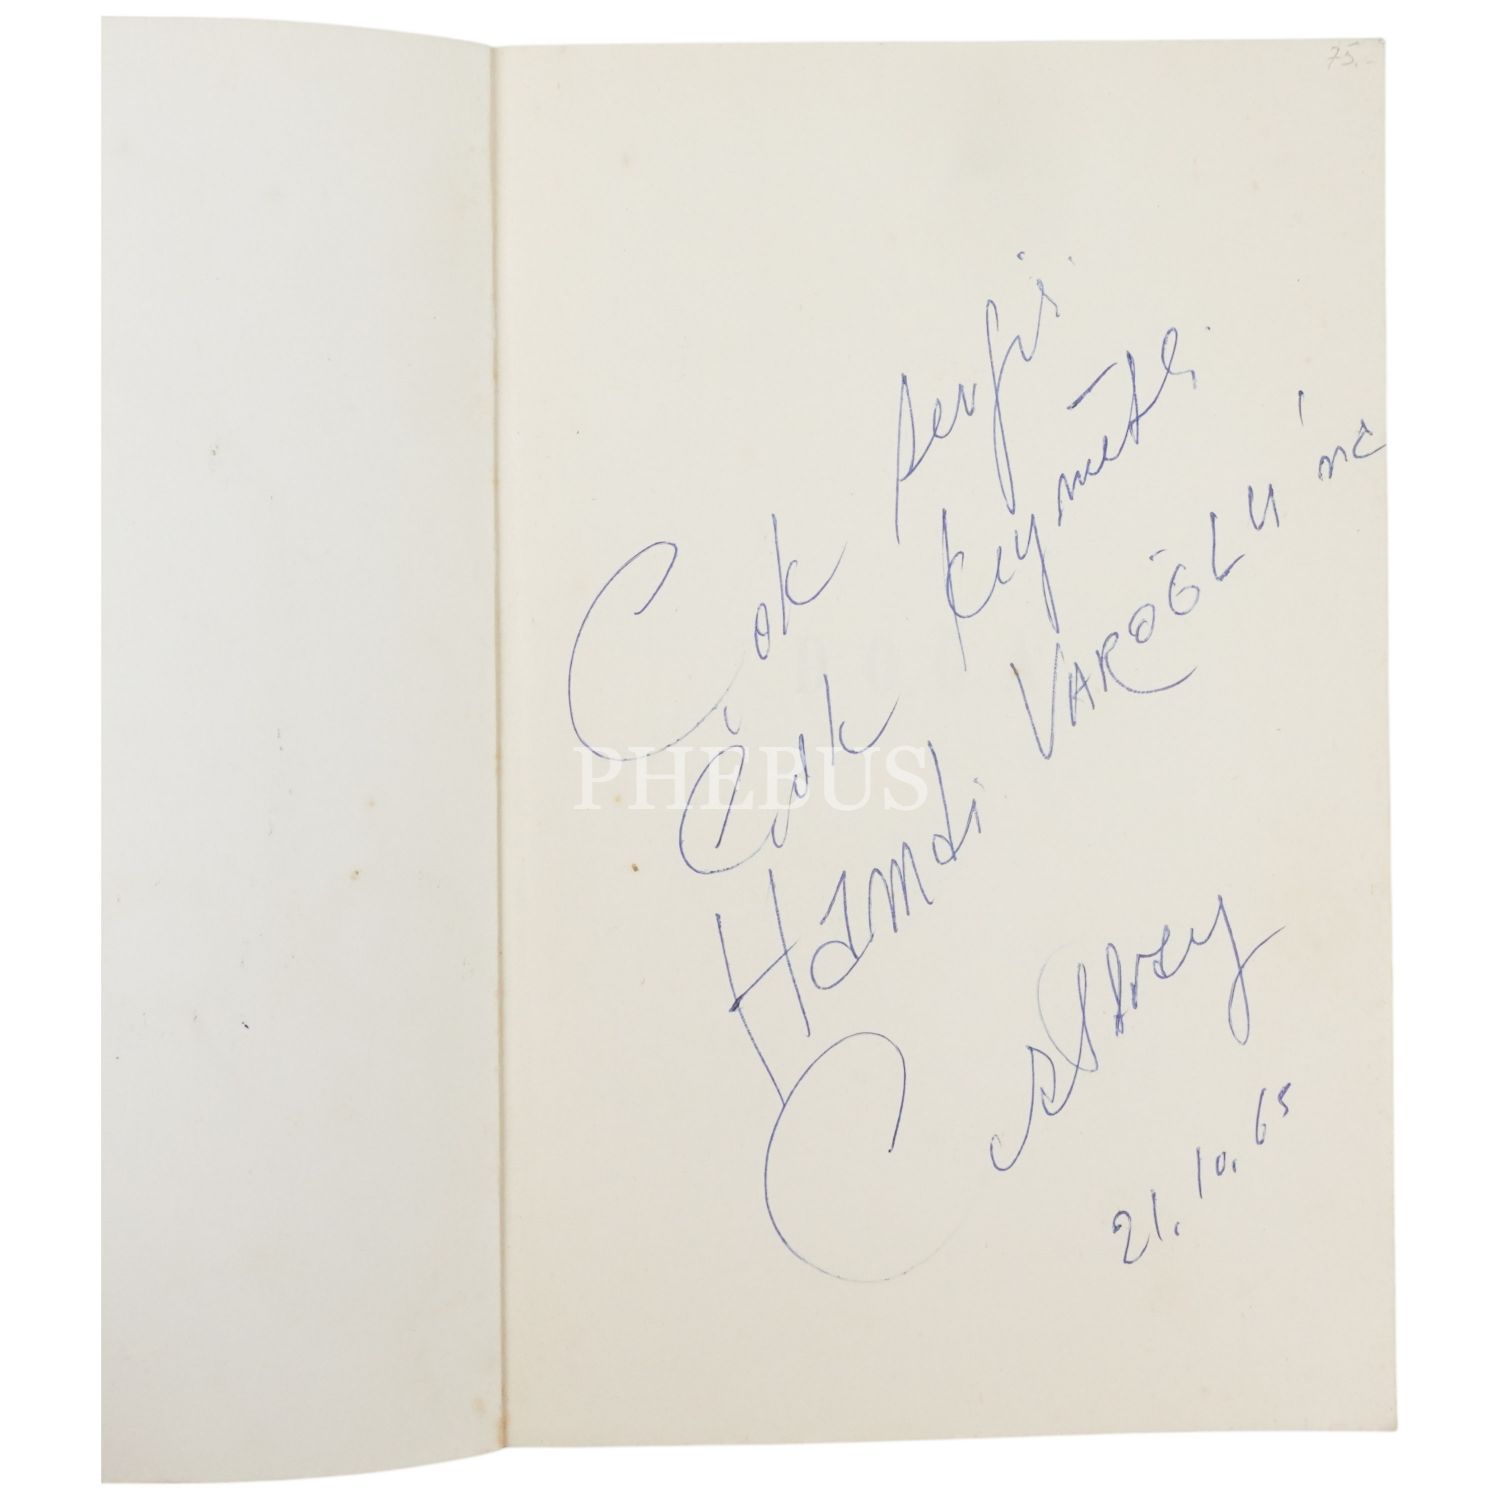 75.-
Çok sevgili
Çok kıymetli
Hamdi VAROĞLU'na
21.10.65
PHEBUS